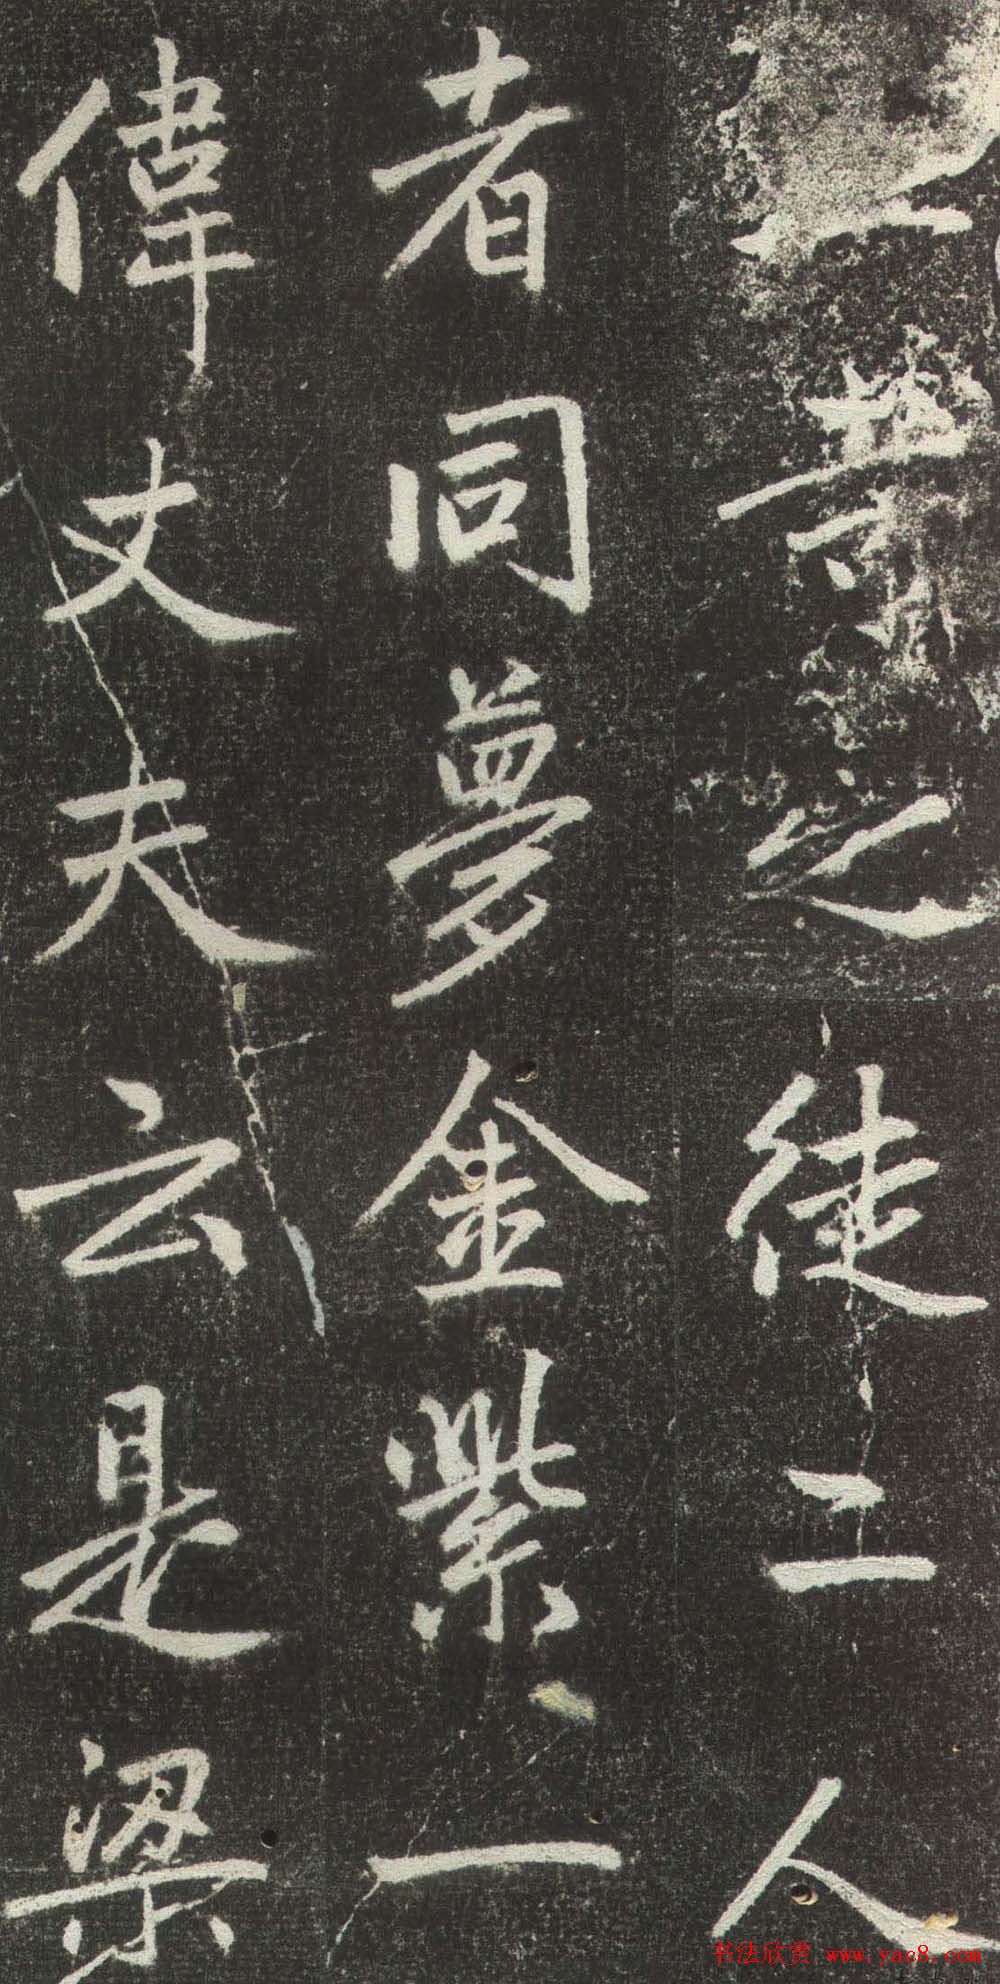 之徒二人
者同夢金紫一
偉丈夫云是梁
书法欣赏 www.yac8.com